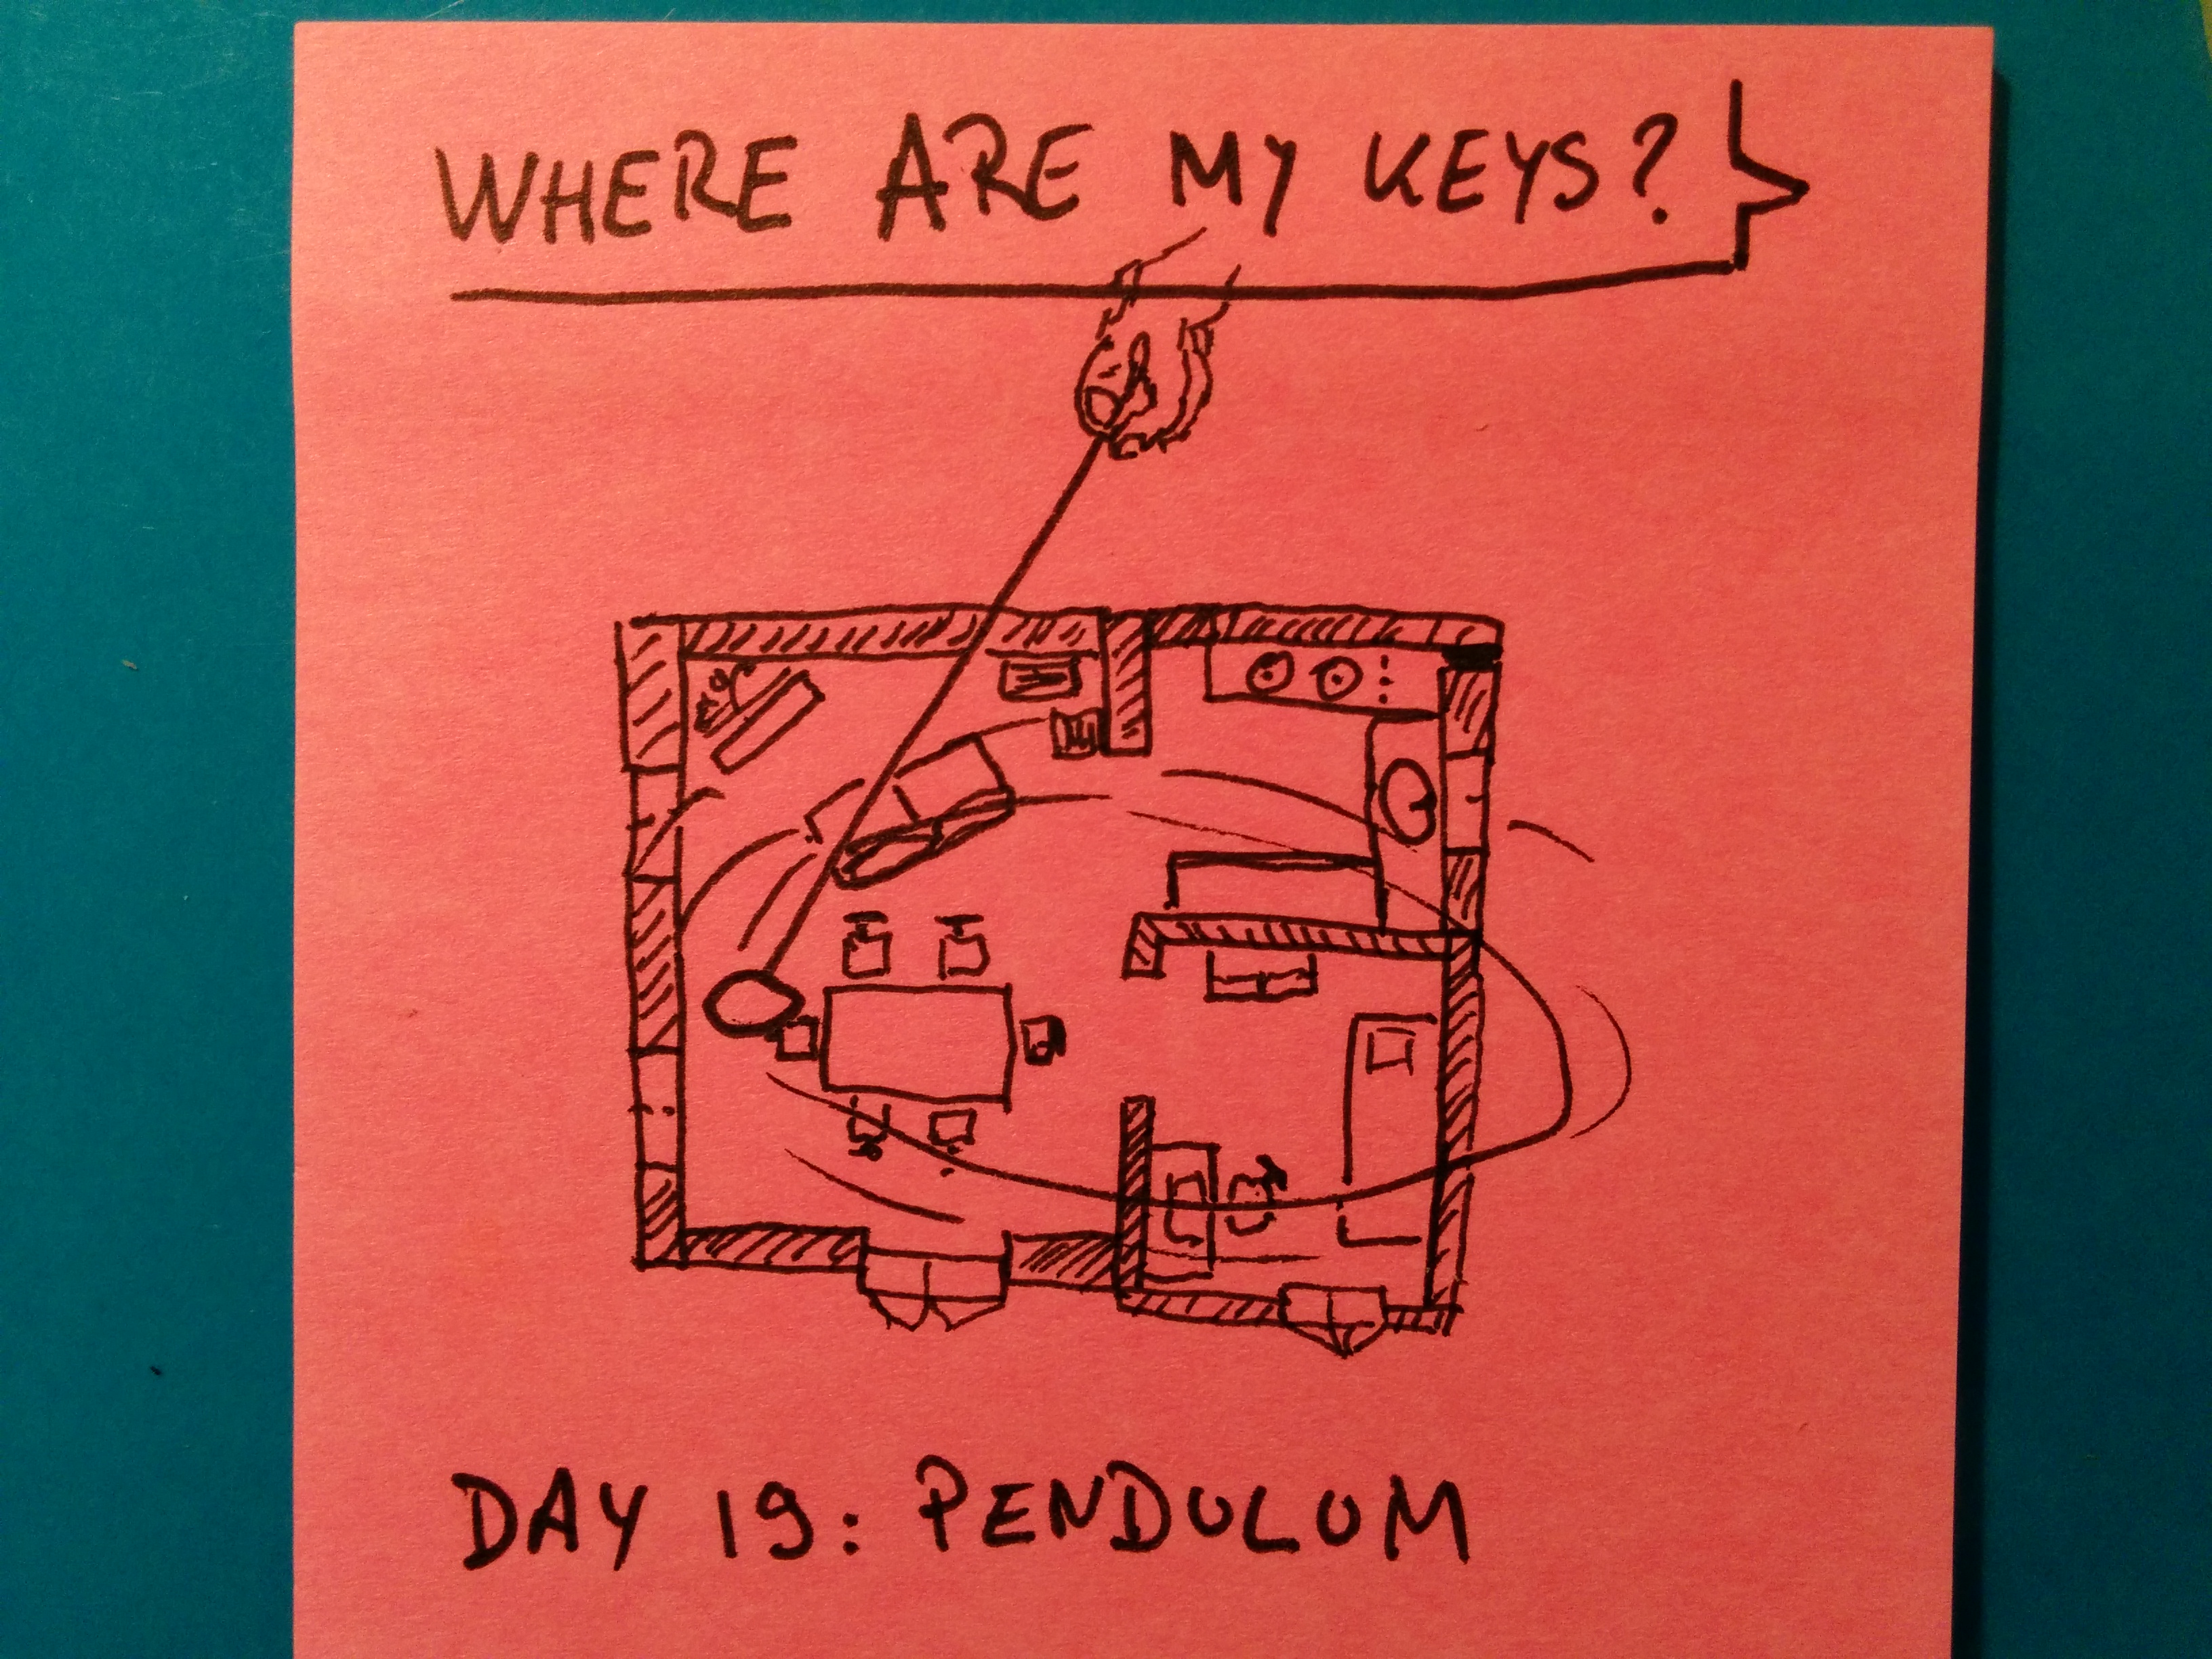 WHERE ARE MY KEYS?
DAY 19: PENDULUM